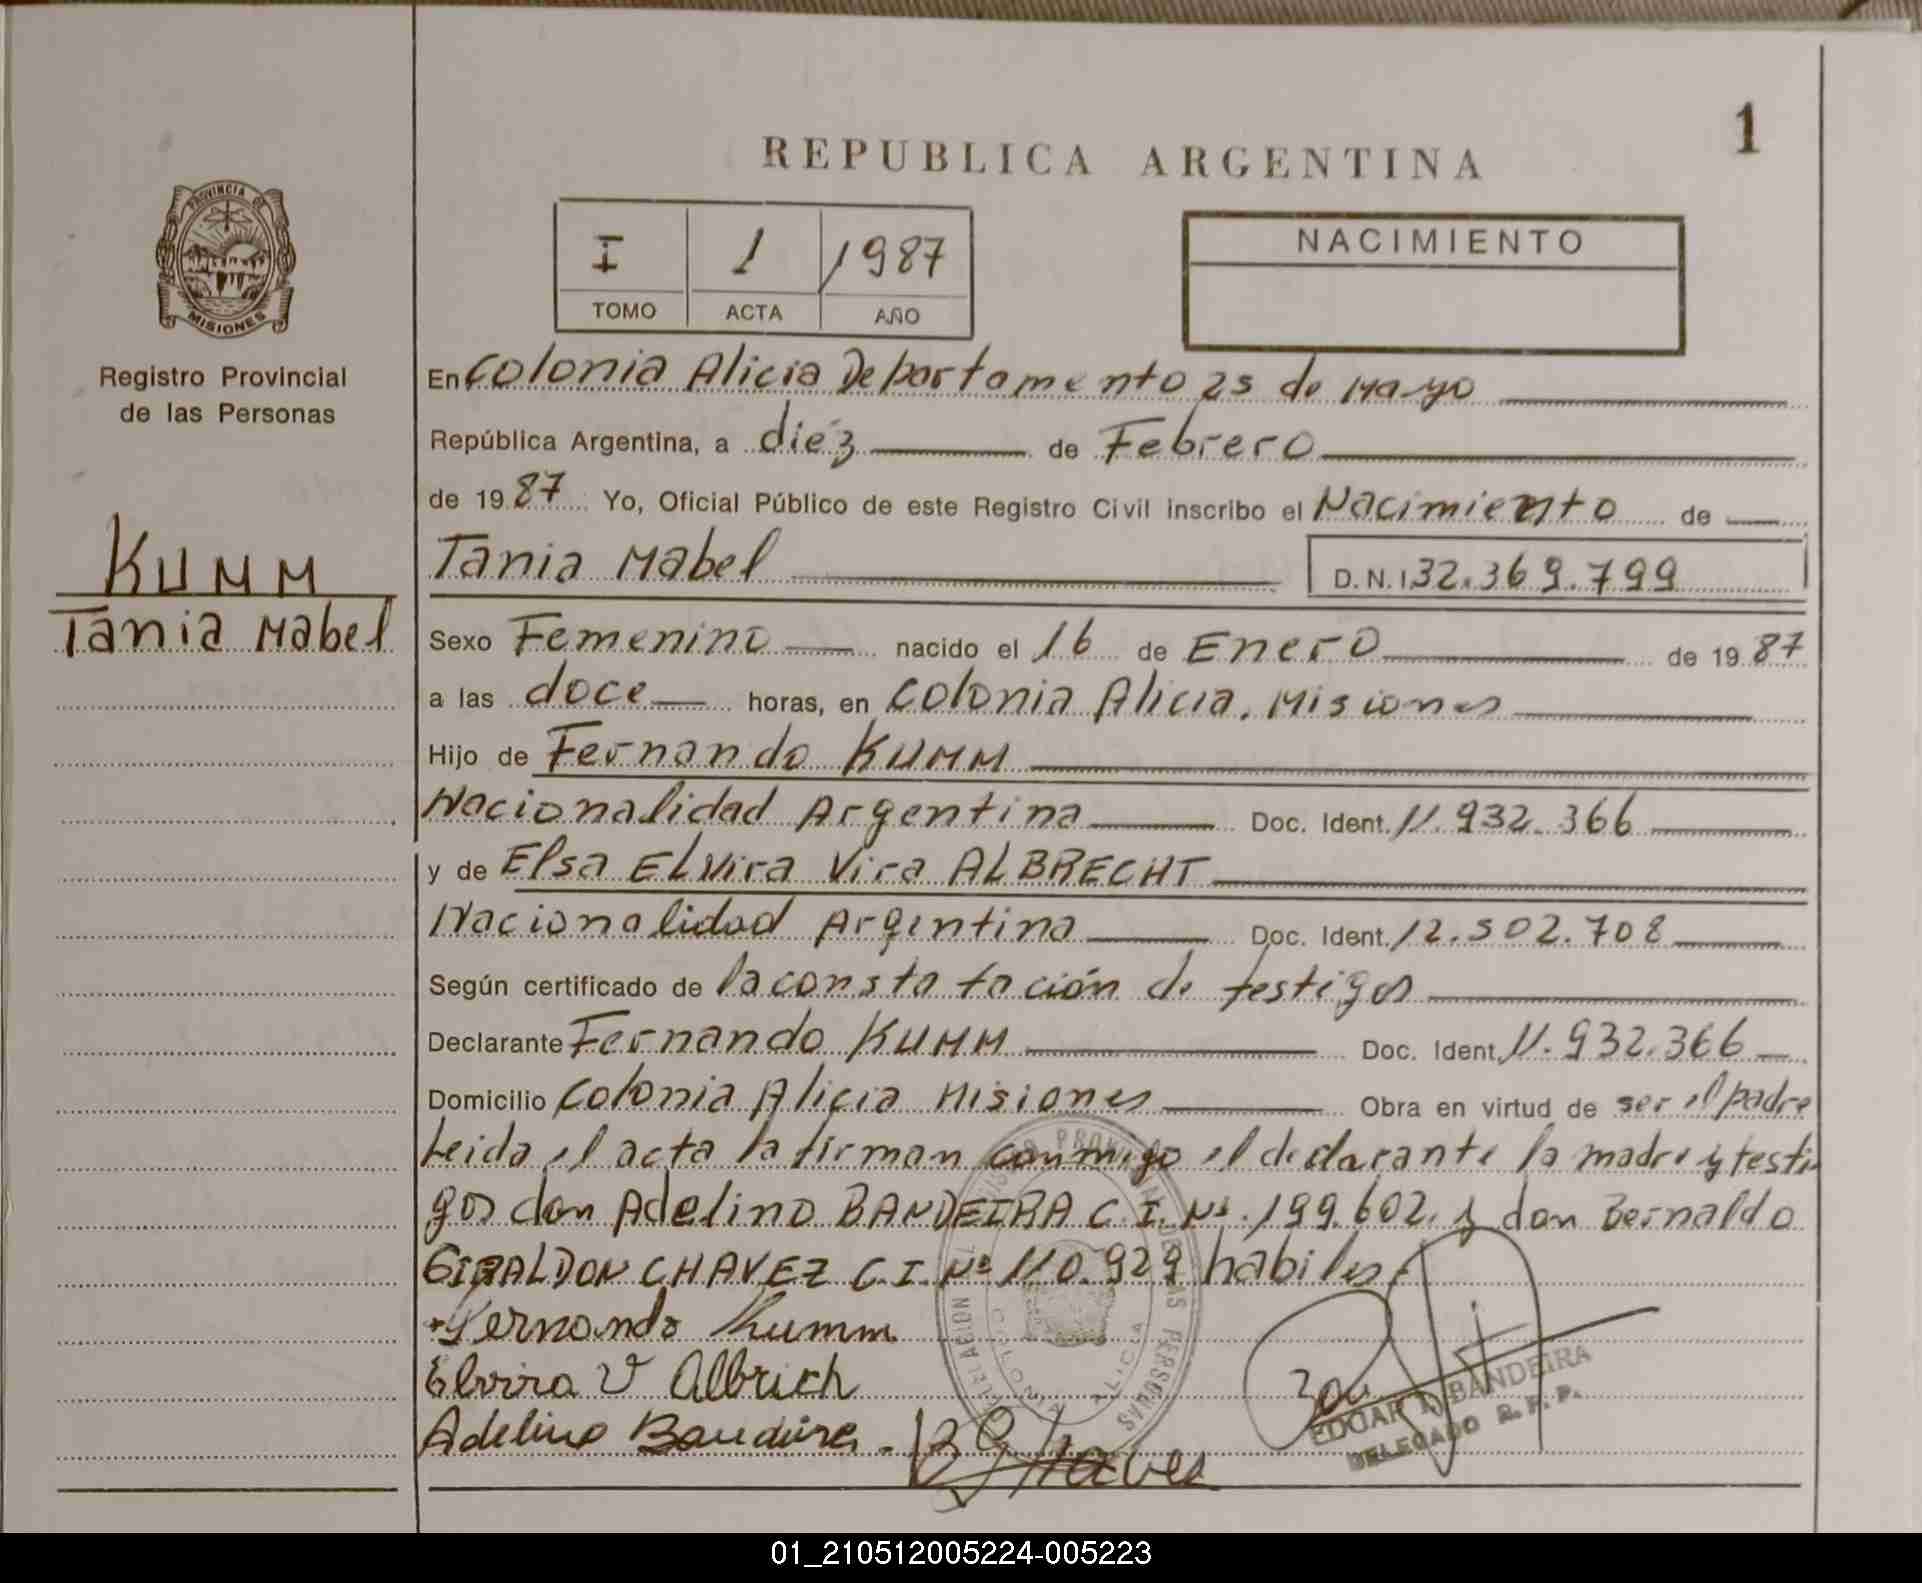 1
REPUBLICA ARGENTINA
I 1 1987
TOMO ACTA AÑO
NACIMIENTO
PROVINCIA DE
MISIONES
Registro Provincial
de las Personas
KUMM
Tania Mabel
En Colonia Alicia Departamento 25 de Mayo
República Argentina, a diéz de Febrero
de 19 87 Yo, Oficial Público de este Registro Civil inscribo el Nacimiento de
Tania Mabel D.N.I. 32.369.799
Sexo Femenino nacido el 16 de Enero de 19 87
a las doce horas, en Colonia Alicia. Misiones
Hijo de Fernando KUMM
Nacionalidad Argentina Doc. Ident. 11.932.366
y de Elsa ELvira Vira ALBRECHT
Nacionalidad Argintina Doc. Ident. 12.502.708
Según certificado de la constatación de testigos
Declarante Fernando KUMM Doc. Ident. 11.932.366
Domicilio Colonia Alicia Misiones Obra en virtud de ser el padre
Leida el acta la firman conmigo el declarante la madre y testi
gos don Adelino BANDEIRA C.I. Nº 199.602. y don Bernaldo
GIRALDON CHAVEZ C.I. Nº 110.929 habiles
Fernando Kumm
Elvira V Albrich
Adelino Bandeira
BG Chavez
EDGAR BANDEIRA
DELEGADO R.P.P.
REGISTRO PROVINCIAL DE LAS PERSONAS
DELEGACION
COLONIA ALICIA
01_210512005224-005223